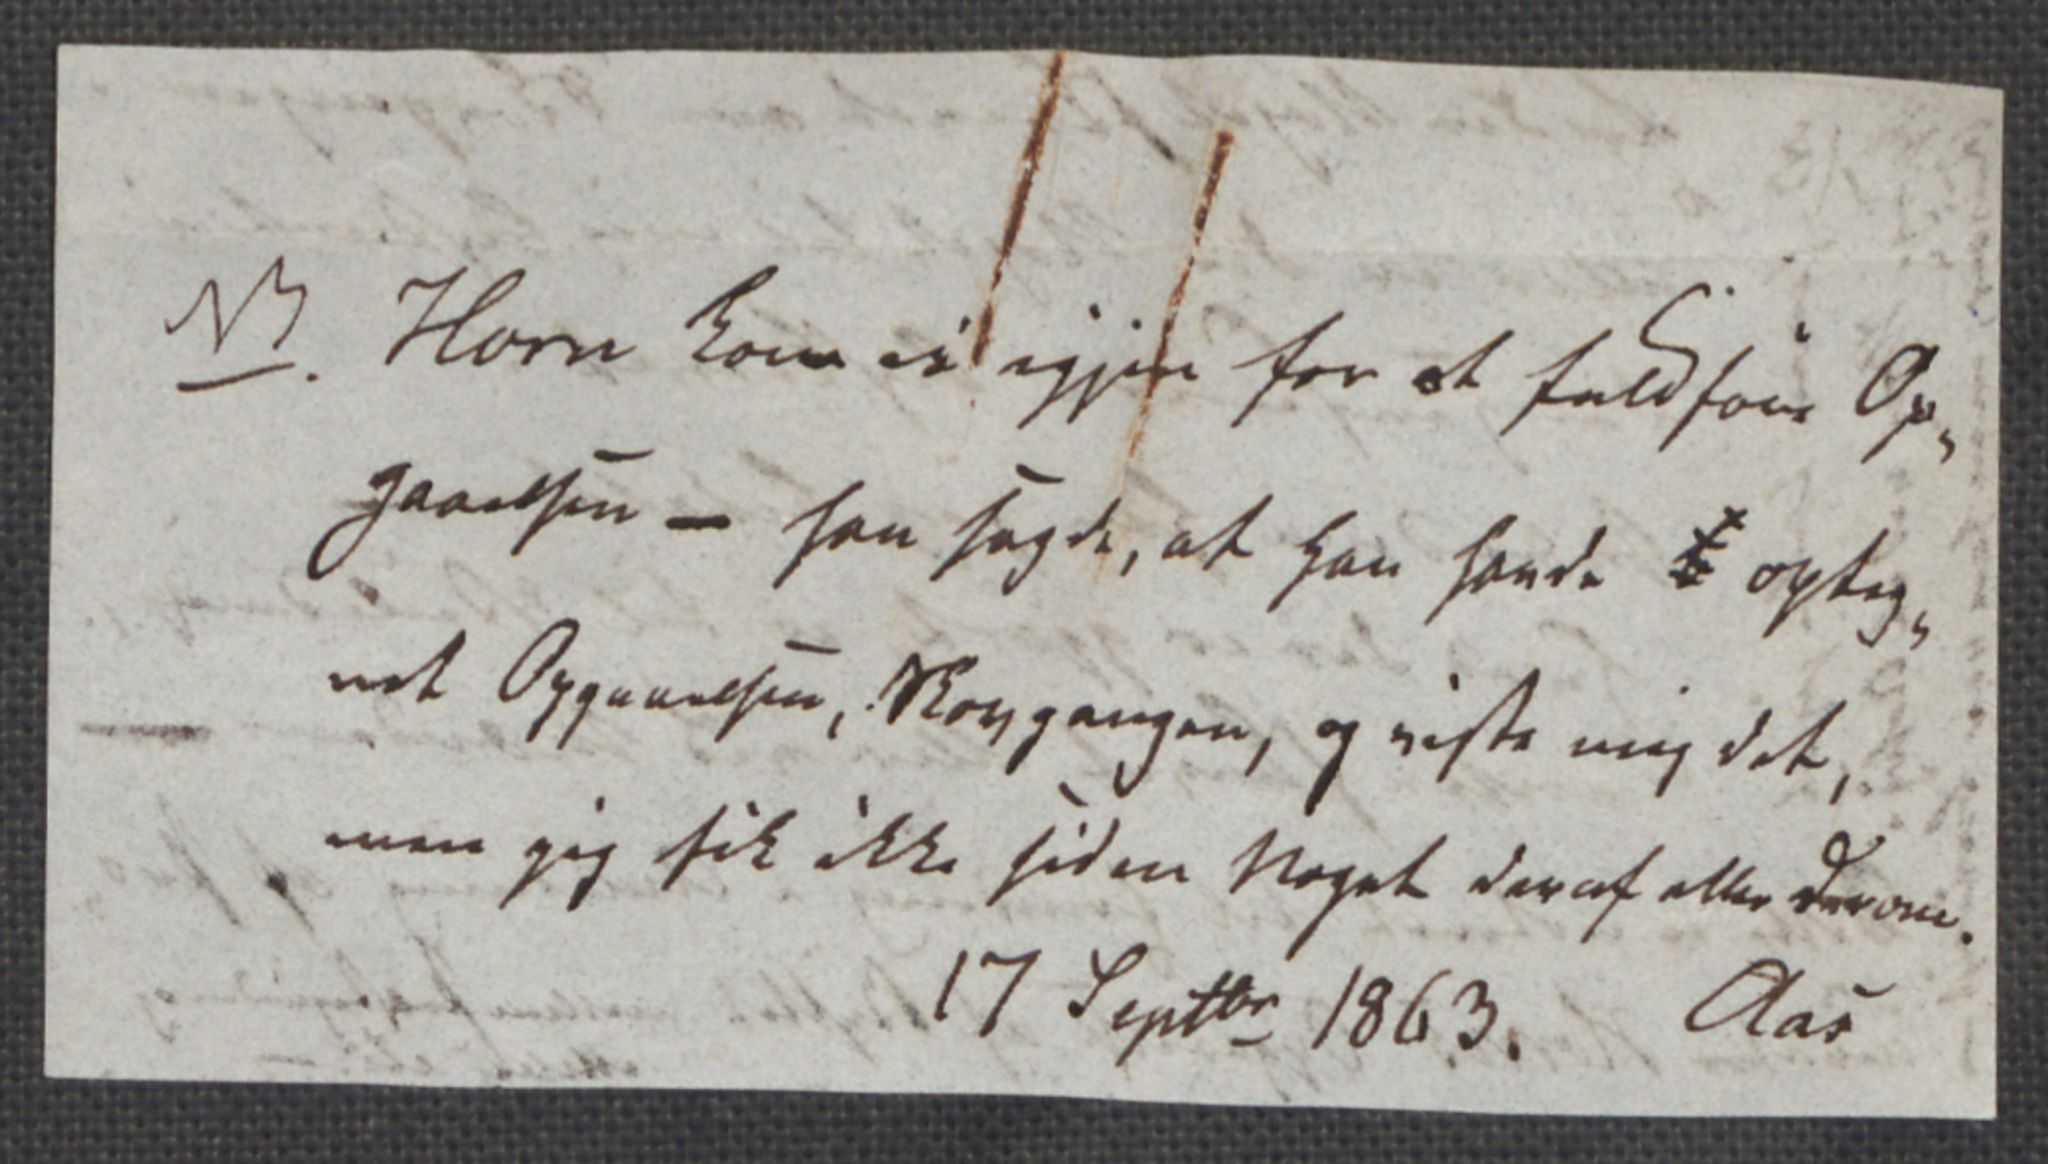 NB. Horn kom ei igjen for at fuldføre Op„
gaaelsen — han sagde, at han havde opteg„
net Opgaaelsen, Kopgangen, og viste mig det,
men jeg fik ikke siden Noget deraf eller derom.
17 Septbr 1863. Aas